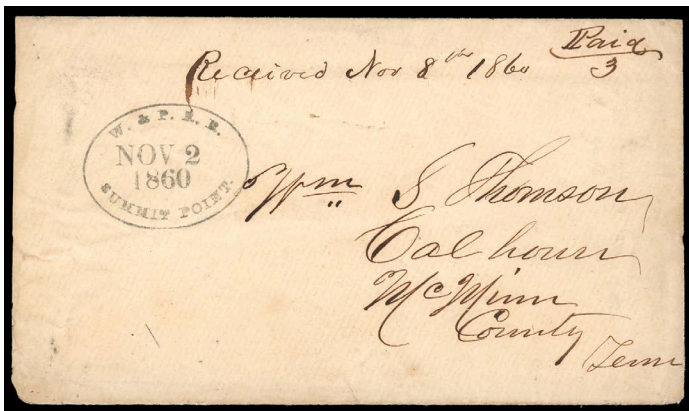 Paid
3
Received Nov 8th 1860
W. & P. R. R.
NOV 2
1860
SUMMIT POINT.
Wm S Thomson
Calhoun
McMinn
County
Tenn